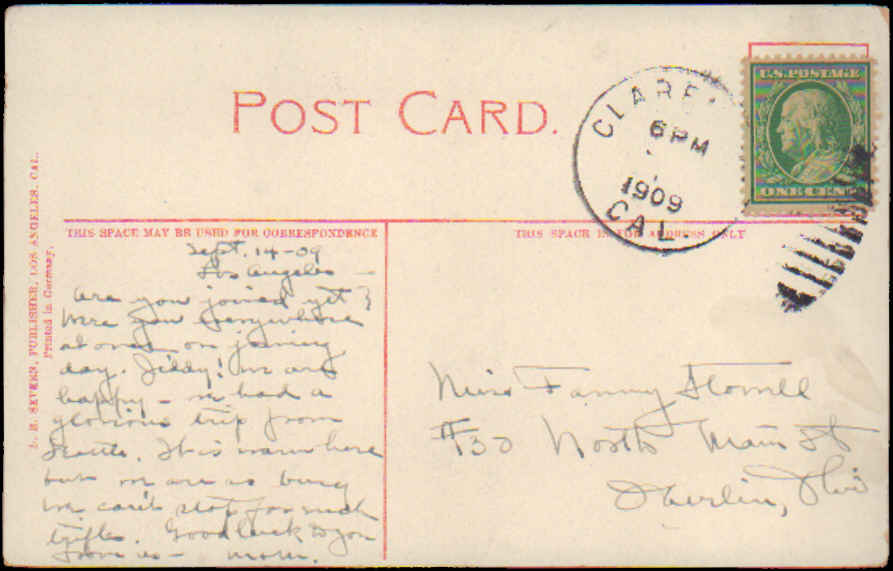 POST CARD.
CLARE
6 PM
1909
CAL.
U.S. POSTAGE
ONE CENT
THIS SPACE MAY BE USED FOR CORRESPONDENCE
THIS SPACE IS FOR ADDRESS ONLY
PUBLISHER, LOS ANGELES, CAL.
Printed in Germany.
Sept. 14-09
Los Angeles —
Are you joined yet?
Were you everywhere
at once on joining
day. we are
happy — we had a
glorious trip from
Seattle. It is warm here
but we are so busy
we can't stop for such
trifles. Good luck to you
from us —
Miss Fanny
#30 North Main St
Oberlin, Ohio